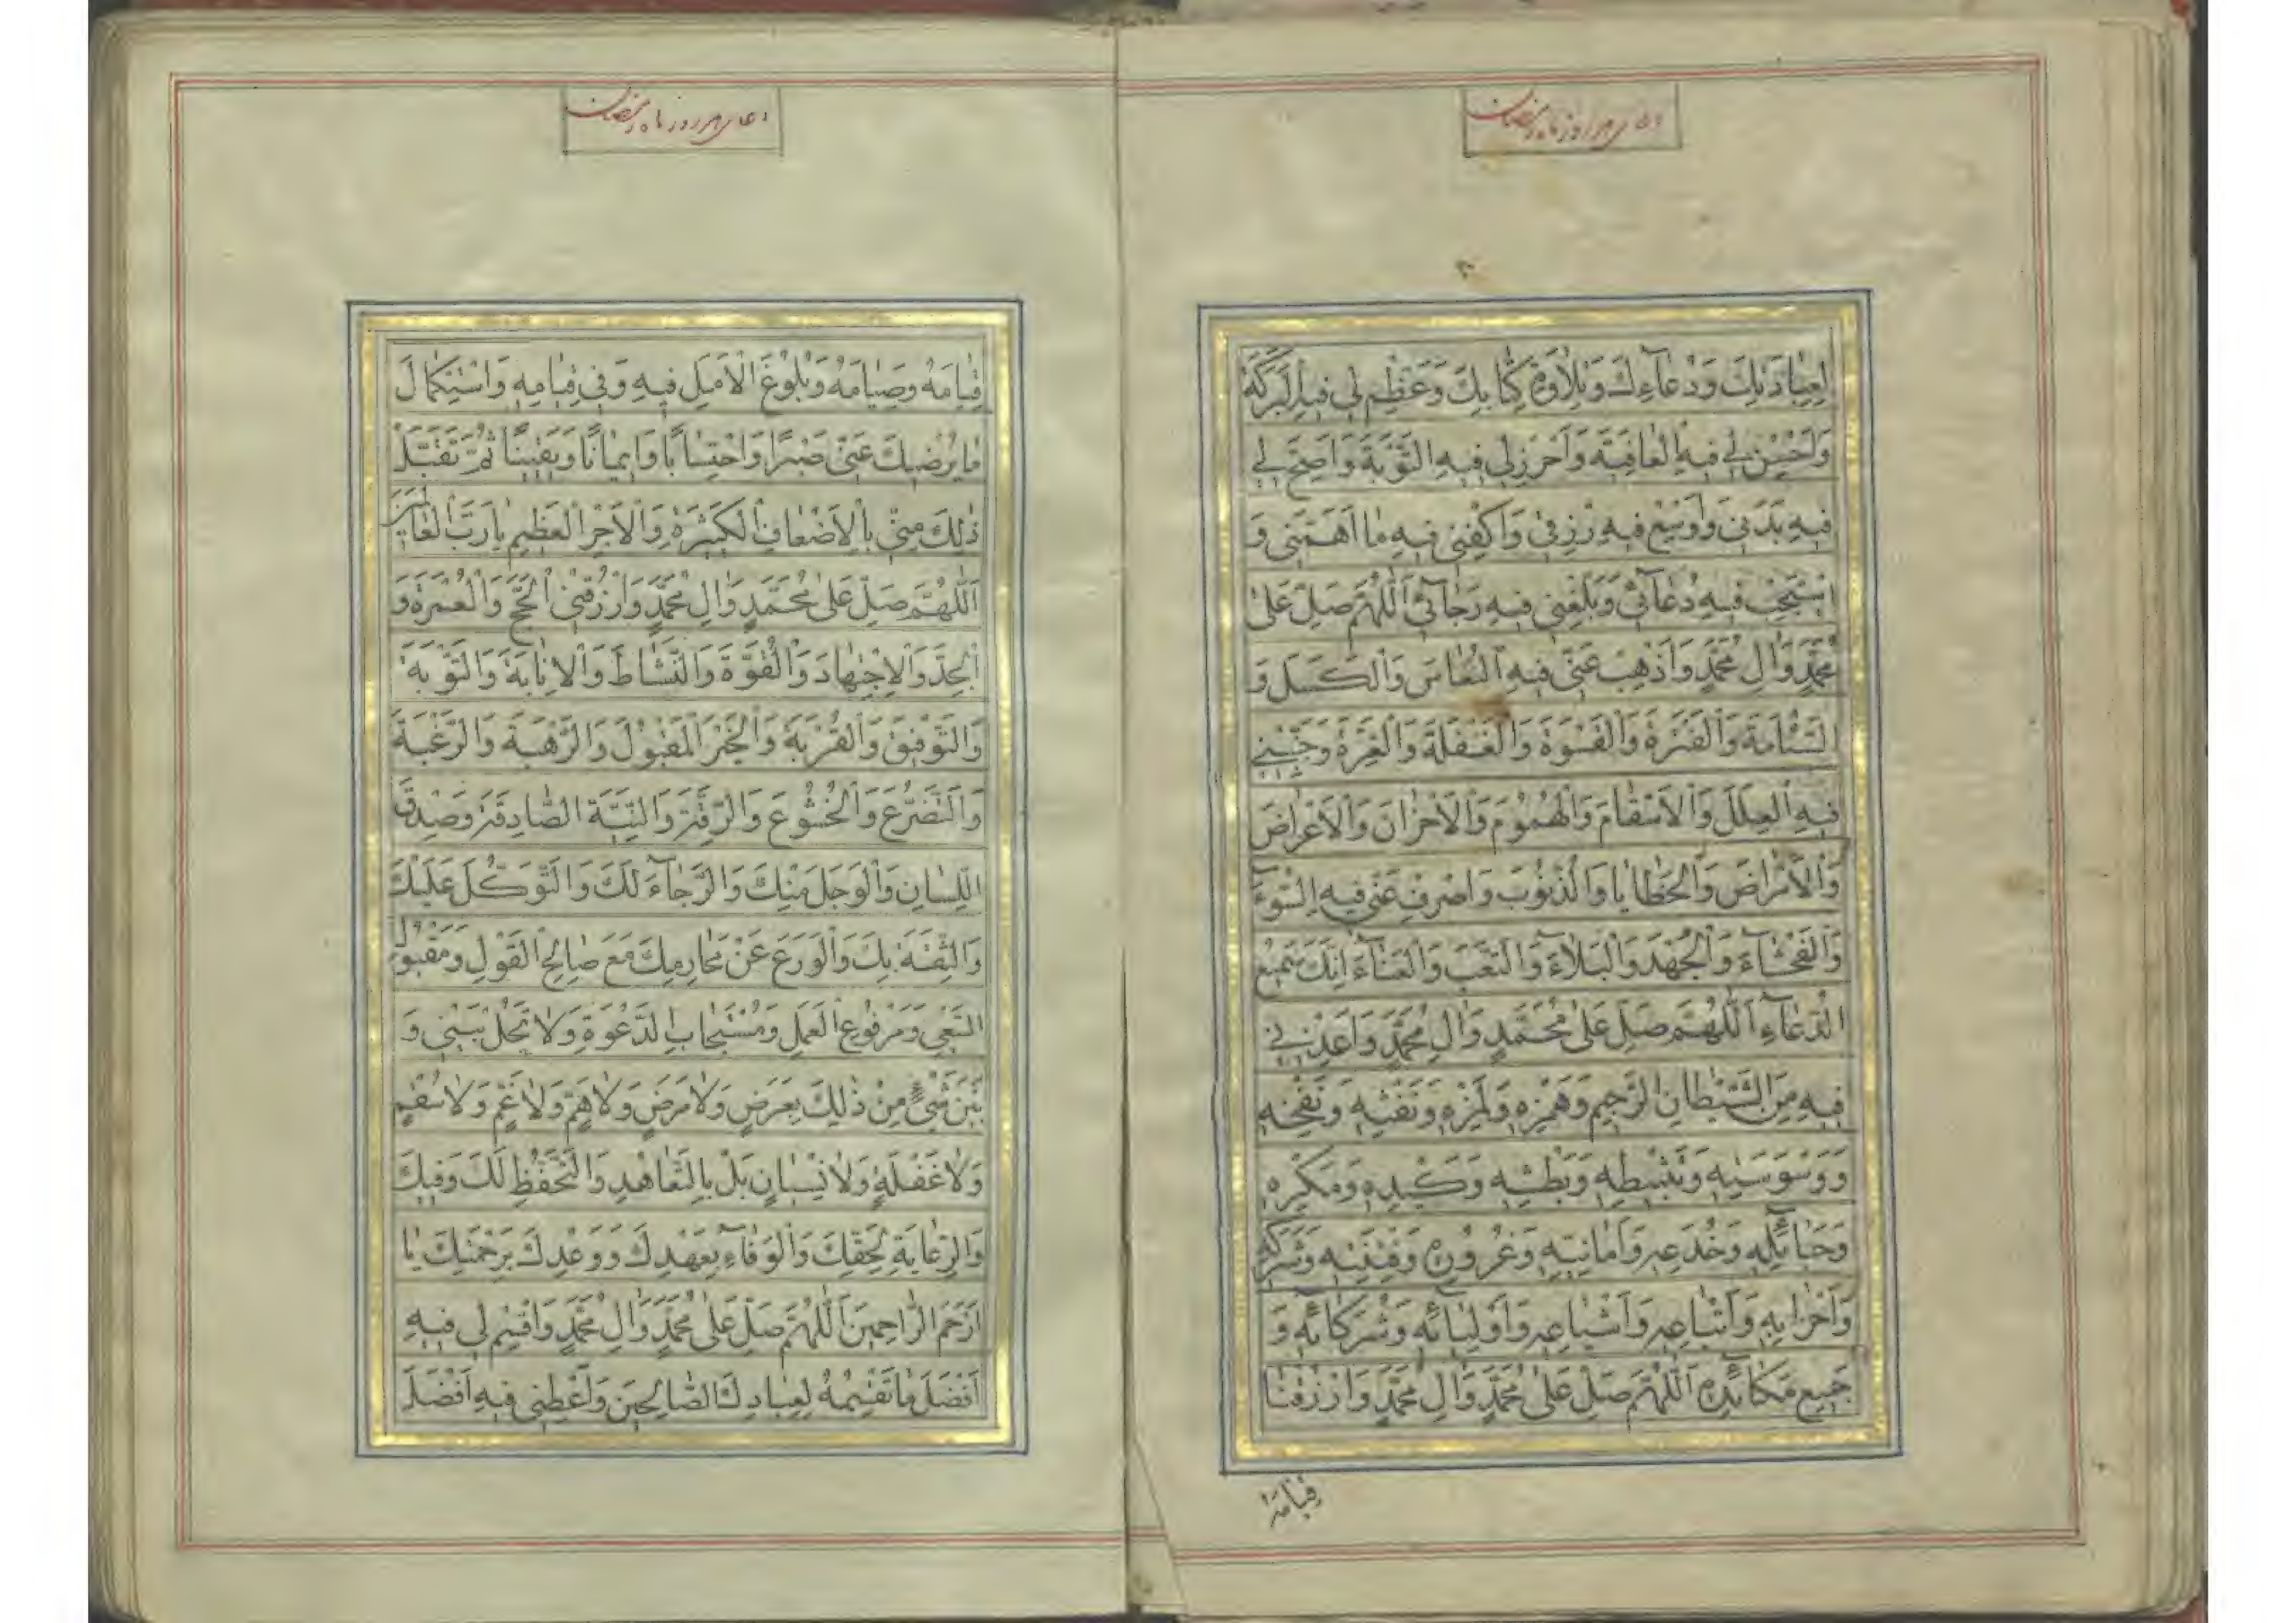 دعای هر روز ماه رمضان
لِعِبَادَتِكَ وَدُعَآءِكَ وَتِلَاوَةِ كِتَابِكَ وَعَظِّمْ لِي فِيهِ الْبَرَكَةَ
وَاَحْسِنْ لِي فِيهِ الْعَافِيَةَ وَاَحْرِزْ لِي فِيهِ التَّوْبَةَ وَاَصِحَّ لِي
فِيهِ بَدَنِي وَاَوْسِعْ فِيهِ رِزْقِي وَاكْفِنِي فِيهِ مَا اَهَمَّنِي وَ
اسْتَجِبْ فِيهِ دُعَآئِي وَبَلِّغْنِي فِيهِ رَجَآئِي اَللّٰهُمَّ صَلِّ عَلىٰ
مُحَمَّدٍ وَاٰلِ مُحَمَّدٍ وَاَذْهِبْ عَنِّي فِيهِ النُّعَاسَ وَالْكَسَلَ وَ
السَّئَامَةَ وَالْفَتْرَةَ وَالْقَسْوَةَ وَالْغَفْلَةَ وَالْغِرَّةَ وَجَنِّبْنِي
فِيهِ الْعِلَلَ وَالْاَسْقَامَ وَالْهُمُومَ وَالْاَحْزَانَ وَالْاَعْرَاضَ
وَالْاَمْرَاضَ وَالْخَطَايَا وَالذُّنُوبَ وَاصْرِفْ عَنِّي فِيهِ السُّوٓءَ
وَالْفَحْشَآءَ وَالْجُهْدَ وَالْبَلَآءَ وَالتَّعَبَ وَالْعَنَآءَ اِنَّكَ سَمِيعُ
الدُّعَآءِ اَللّٰهُمَّ صَلِّ عَلىٰ مُحَمَّدٍ وَاٰلِ مُحَمَّدٍ وَاَعِذْنِي
فِيهِ مِنَ الشَّيْطَانِ الرَّجِيمِ وَهَمْزِهِ وَلَمْزِهِ وَنَفْثِهِ وَنَفْخِهِ
وَوَسْوَسَتِهِ وَتَثْبِيطِهِ وَبَطْشِهِ وَكَيْدِهِ وَمَكْرِهِ
وَحَبَآئِلِهِ وَخُدَعِهِ وَاَمَانِيِّهِ وَغُرُورِهِ وَفِتْنَتِهِ وَشَرَكِهِ
وَاَحْزَابِهِ وَاَتْبَاعِهِ وَاَشْيَاعِهِ وَاَوْلِيَآئِهِ وَشُرَكَآئِهِ وَ
جَمِيعِ مَكَآئِدِهِ اَللّٰهُمَّ صَلِّ عَلىٰ مُحَمَّدٍ وَاٰلِ مُحَمَّدٍ وَارْزُقْنَا
قِيَامَهُ
دعای هر روز ماه رمضان
قِيَامَهُ وَصِيَامَهُ وَبُلُوغَ الْاَمَلِ فِيهِ وَفِي قِيَامِهِ وَاسْتِكْمَالَ
مَا يُرْضِيكَ عَنِّي صَبْرًا وَاحْتِسَابًا وَاِيمَانًا وَيَقِينًا ثُمَّ تَقَبَّلْ
ذٰلِكَ مِنِّي بِالْاَضْعَافِ الْكَثِيرَةِ وَالْاَجْرِ الْعَظِيمِ يَا رَبَّ الْعَالَمِينَ
اَللّٰهُمَّ صَلِّ عَلىٰ مُحَمَّدٍ وَاٰلِ مُحَمَّدٍ وَارْزُقْنِي الْحَجَّ وَالْعُمْرَةَ وَ
الْجِدَّ وَالْاِجْتِهَادَ وَالْقُوَّةَ وَالنَّشَاطَ وَالْاِنَابَةَ وَالتَّوْبَةَ
وَالتَّوْفِيقَ وَالْقُرْبَةَ وَالْخَيْرَ الْمَقْبُولَ وَالرَّهْبَةَ وَالرَّغْبَةَ
وَالتَّضَرُّعَ وَالْخُشُوعَ وَالرِّقَّةَ وَالنِّيَّةَ الصَّادِقَةَ وَصِدْقَ
اللِّسَانِ وَالْوَجَلَ مِنْكَ وَالرَّجَآءَ لَكَ وَالتَّوَكُّلَ عَلَيْكَ
وَالثِّقَةَ بِكَ وَالْوَرَعَ عَنْ مَحَارِمِكَ مَعَ صَالِحِ الْقَوْلِ وَمَقْبُولِ
السَّعْيِ وَمَرْفُوعِ الْعَمَلِ وَمُسْتَجَابِ الدَّعْوَةِ وَلَا تَحُلْ بَيْنِي وَ
بَيْنَ شَيْءٍ مِنْ ذٰلِكَ بِعَرَضٍ وَلَا مَرَضٍ وَلَا هَمٍّ وَلَا غَمٍّ وَلَا سُقْمٍ
وَلَا غَفْلَةٍ وَلَا نِسْيَانٍ بَلْ بِالتَّعَاهُدِ وَالتَّحَفُّظِ لَكَ وَفِيكَ
وَالرِّعَايَةِ لِحَقِّكَ وَالْوَفَآءِ بِعَهْدِكَ وَوَعْدِكَ بِرَحْمَتِكَ يَا
اَرْحَمَ الرَّاحِمِينَ اَللّٰهُمَّ صَلِّ عَلىٰ مُحَمَّدٍ وَاٰلِ مُحَمَّدٍ وَاقْسِمْ لِي فِيهِ
اَفْضَلَ مَا تَقْسِمُهُ لِعِبَادِكَ الصَّالِحِينَ وَاَعْطِنِي فِيهِ اَفْضَلَ